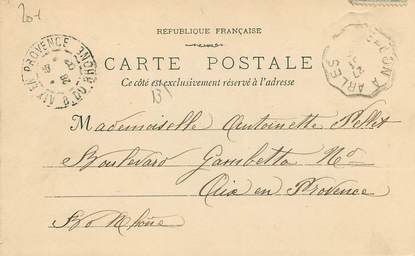 201
RÉPUBLIQUE FRANÇAISE
CARTE POSTALE
Ce côté est exclusivement réservé à l'adresse
Mademoiselle Antoinette Pellet
Boulevard Gambetta No
Aix en Provence
Bes du Rhône
AIX EN PROVENCE
B. DU RHONE
A ARLES